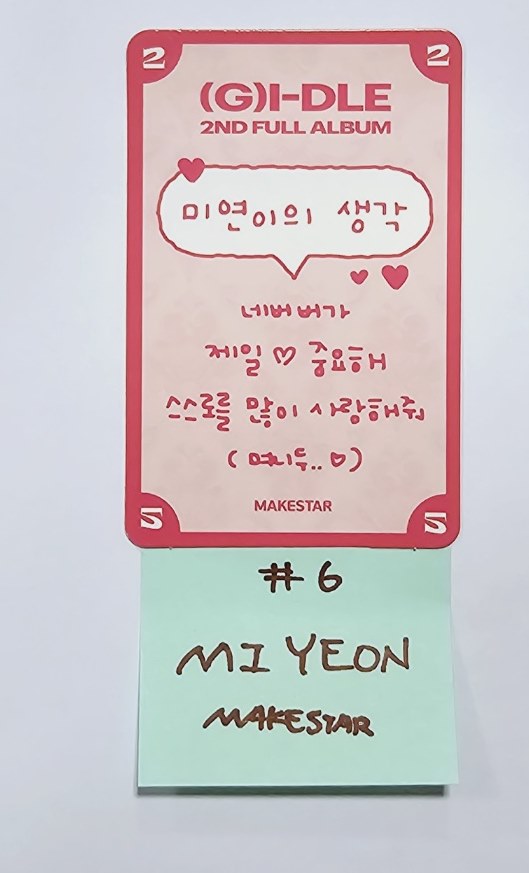 2 2
(G)I-DLE
2ND FULL ALBUM
미연이의 생각
네버버가
제일 ♡ 중요해
스스로를 많이 사랑해줘
( 며니두..♡)
MAKESTAR
2 2
# 6
MI YEON
MAKESTAR